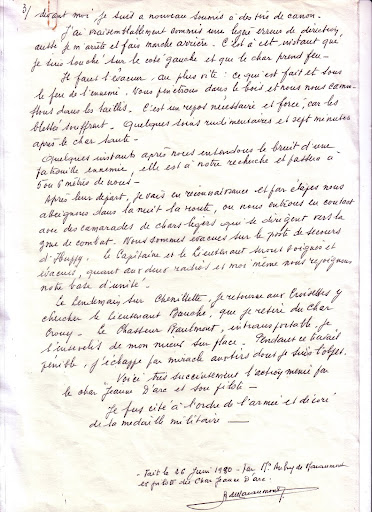 3/ devant moi, je suis à nouveau soumis à des tirs de canon.
J'ai vraisemblablement commis une légère erreur de direction,
aussi je m'arrête et fais marche arrière. C'est à cet instant que
je suis touché sur le côté gauche et que le char prend feu _
Il faut l'évacuer au plus vite : ce qui est fait et sous
le feu de l'ennemi. Nous pénétrons dans le bois et nous nous
dans les taillis. C'est un repos nécessaire et forcé, car les
blessés souffrent _ Quelques soins rudimentaires et sept minutes
après le char saute _
Quelques instants après nous entendons le bruit d'une
patrouille ennemie, elle est à notre recherche et passera à
5 ou 6 mètres de nous _
Après leur départ, je vais en reconnaissance et par étapes nous
atteignons dans la nuit la route, où nous entrons en contact
avec des camarades de chars légers qui se dirigent vers la
zone de combat. Nous sommes évacués sur le poste de secours
d'Huppy. Le Capitaine et le Lieutenant seront soignés et
évacués, quant aux deux radios et moi même nous rejoignons
notre base d'unité _
Le lendemain sur Chenillette, je retourne aux Croisettes y
chercher le Lieutenant Bauché, que je retire du char
Crouy _ Le Chasseur intransportable je
l'ensevelis de mon mieux sur place _ Pendant ce travail
pénible, j'échappe par miracle aux tirs dont je suis l'objet.
Voici très succintement l'action menée par
le char Jeanne d'Arc et son pilote _
Je fus cité à l'ordre de l'armée et décoré
de la médaille militaire _
_ Fait le 26 Juin 1980 _ par Mr de
ex pilote du Char Jeanne d'Arc.